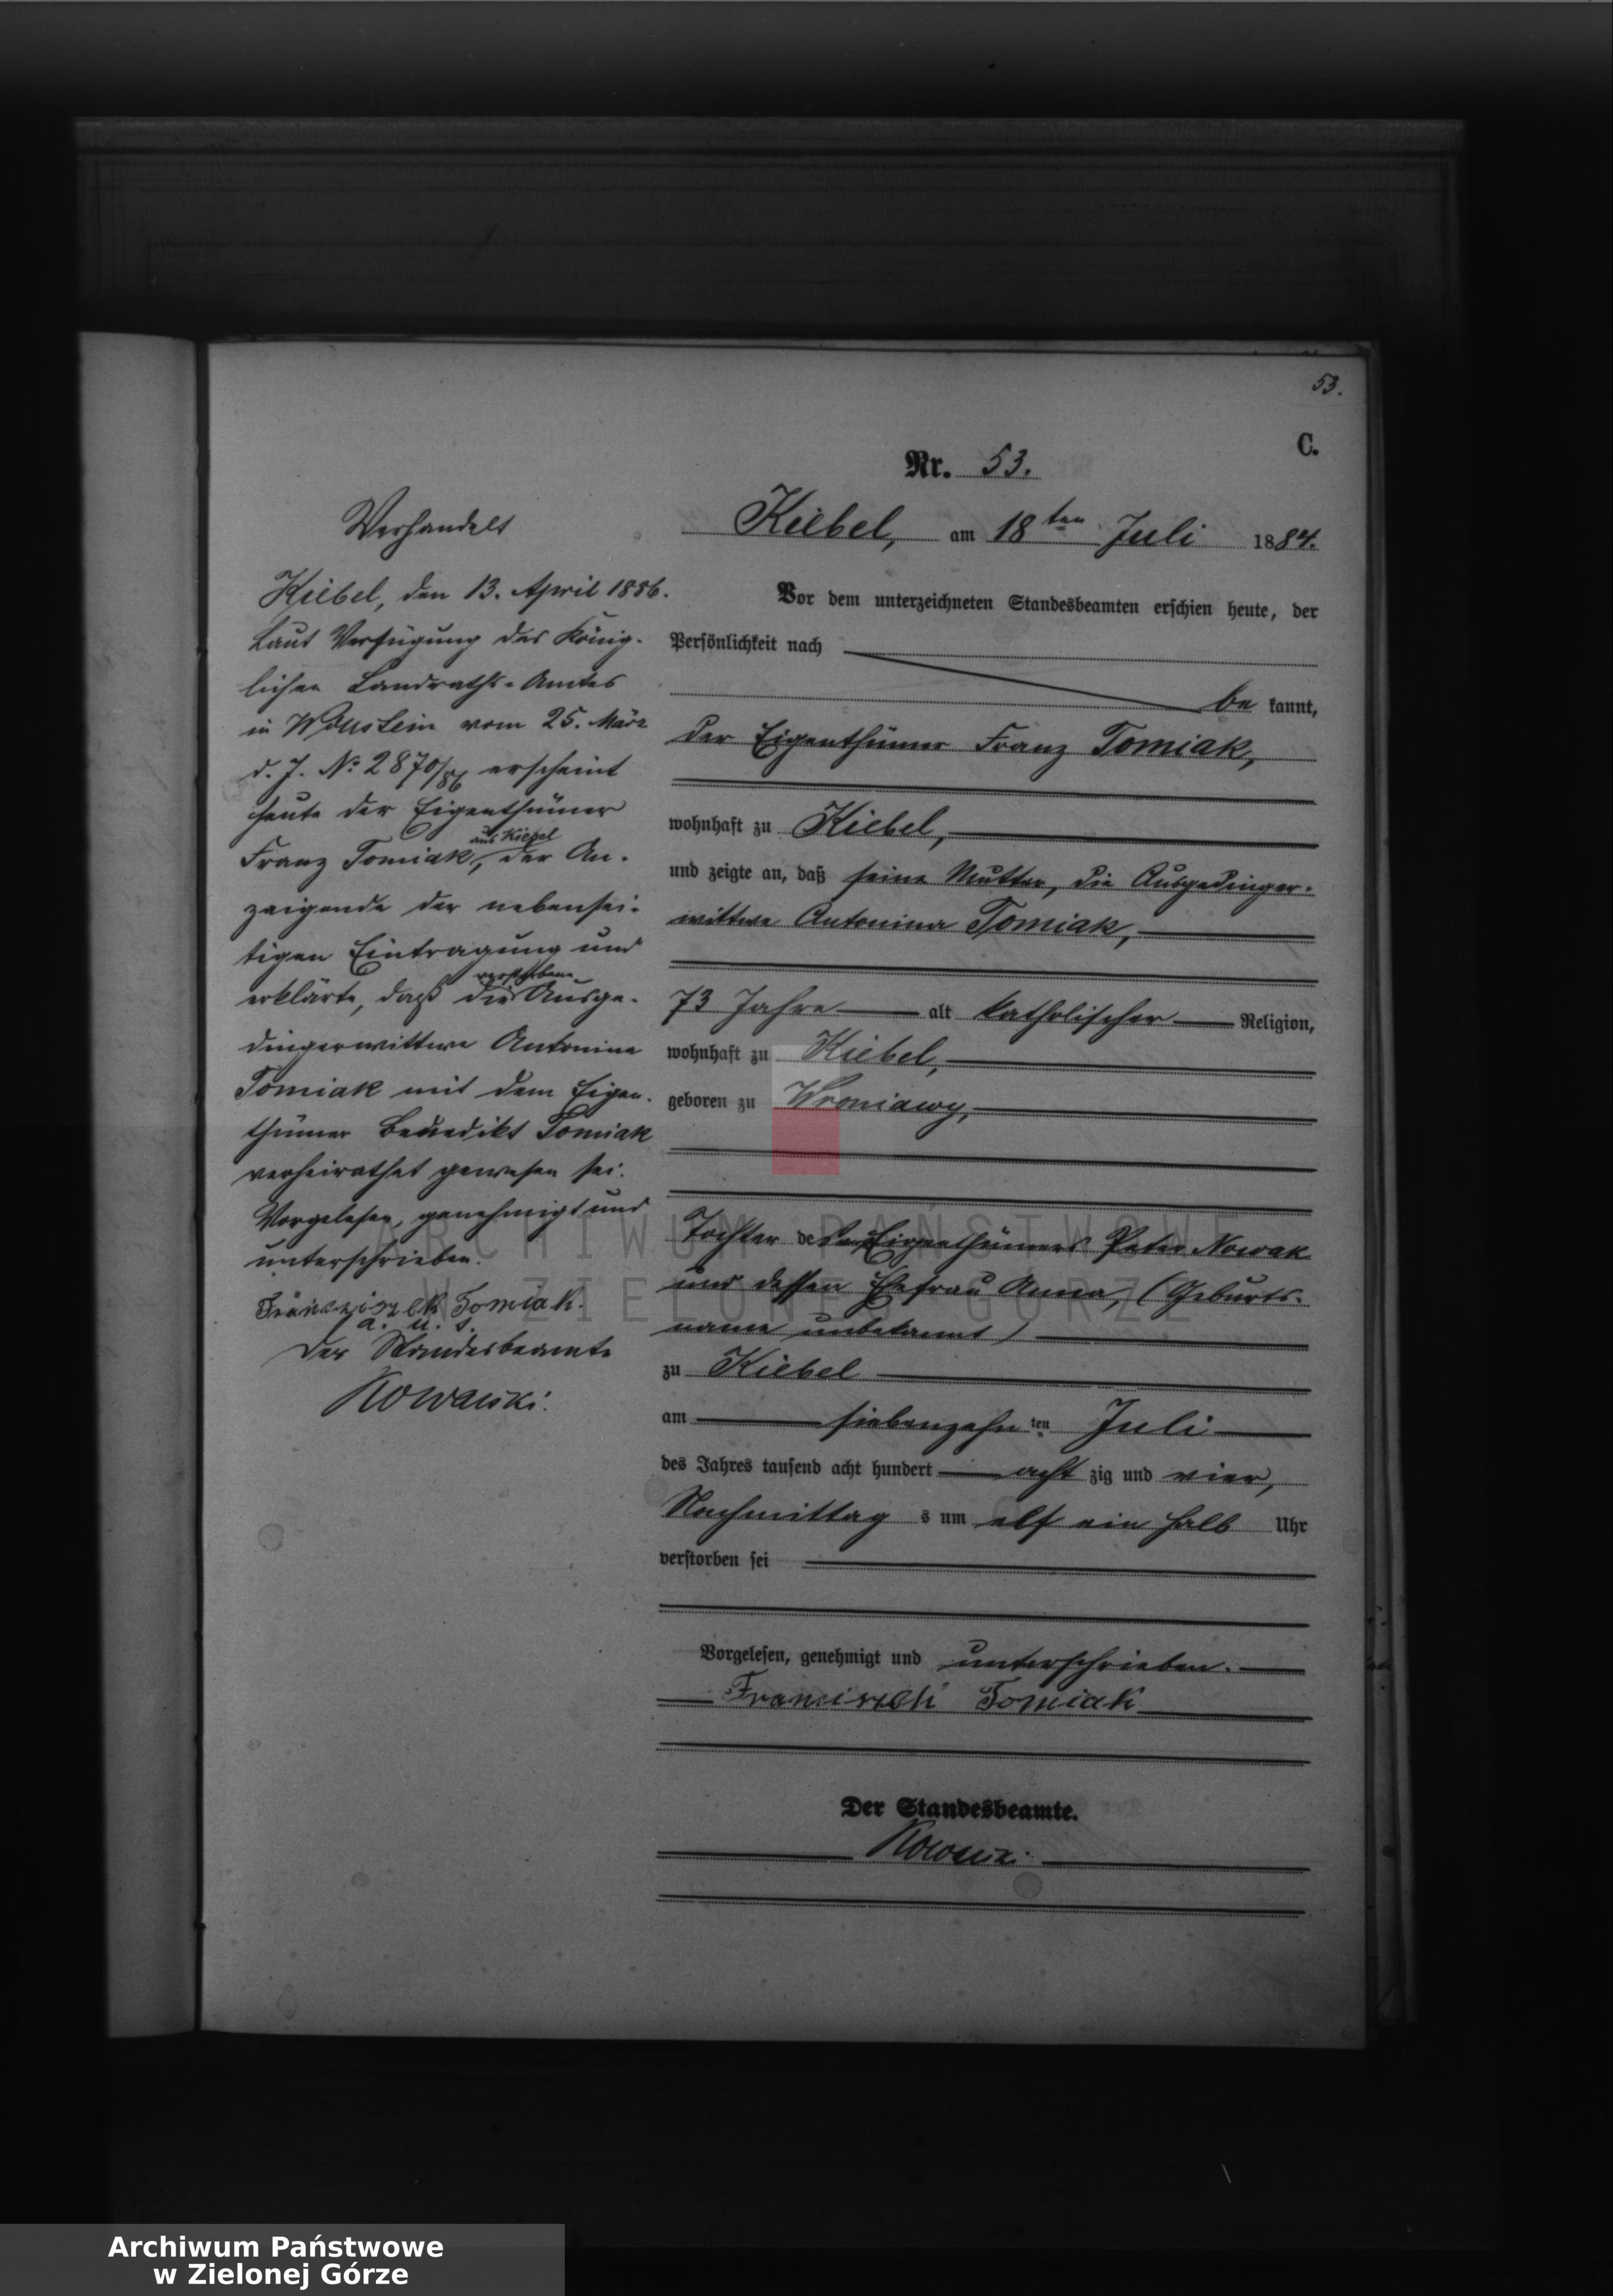 53.
C.
Nr. 53.
Kiebel, am 18ten Juli 1884.
Vor dem unterzeichneten Standesbeamten erschien heute, der
Persönlichkeit nach
be kannt,
der Eigenthümer Franz Tomiak,
wohnhaft zu Kiebel,
und zeigte an, daß seine Mutter, die Ausgedinger-
wittwe Antonina Tomiak,
73 Jahre alt katholischer Religion,
wohnhaft zu Kiebel,
geboren zu Wroniawy,
Tochter des Eigenthümers Peter Nowak
und dessen Ehefrau Anna, (Geburts-
name unbekannt)
zu Kiebel
am siebenzehn ten Juli
des Jahres tausend acht hundert acht zig und vier,
Nachmittag s um elf ein halb Uhr
verstorben sei
Vorgelesen, genehmigt und unterschrieben.
Franciszek Tomiak
Der Standesbeamte.
Verhandelt
Kiebel, den 13. April 1886.
Laut Verfügung des König-
lichen Landraths-Amtes
in Wollstein vom 25. März
d. J. No 2870/86 erscheint
heute der Eigenthümer
aus Kiebel
Franz Tomiak, der An-
zeigende der nebensei-
tigen Eintragung und
verstorbene
erklärte, daß die Ausge-
dingerwittwe Antonina
Tomiak mit dem Eigen-
thümer Benedikt Tomiak
verheirathet gewesen sei.
Vorgelesen, genehmigt und
unterschrieben.
Franciszek Tomiak.
a. u. s.
Der Standesbeamte
ARCHIWUM PAŃSTWOWE
W ZIELONEJ GÓRZE
Archiwum Państwowe
w Zielonej Górze